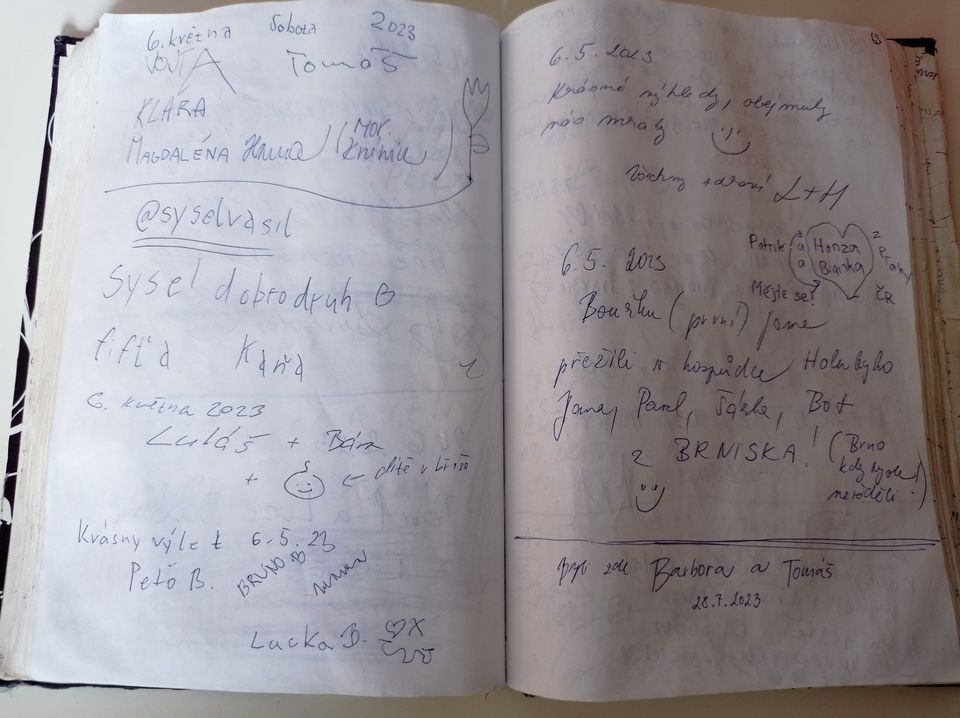 6. května Sobota 2023
VOJTA Tomáš
KLÁRA
MAGDALÉNA Hanna (Mor.
@syselvasil
Sysel dobrodruh
fiťťa Káťa
6. května 2023
Lukáš + Bára
+ ← dítě v břiše
Krásny výlet 6.5.23
Peťo B. BRUNO B
Lucka B.
63
6.5. 2023
Krásné výhledy, objímaly
nás mraky
Všechny zdraví L+H
Patrik a Honza z
a Bianka
Mějte se! ČR
6.5. 2023
Bouřku (první) jsme
přežili v hospůdce Holubyho
Jana, Pavel, Bot
z BRNISKA! (Brno
kdy
Byli zde Barbora a Tomáš
28.7.2023